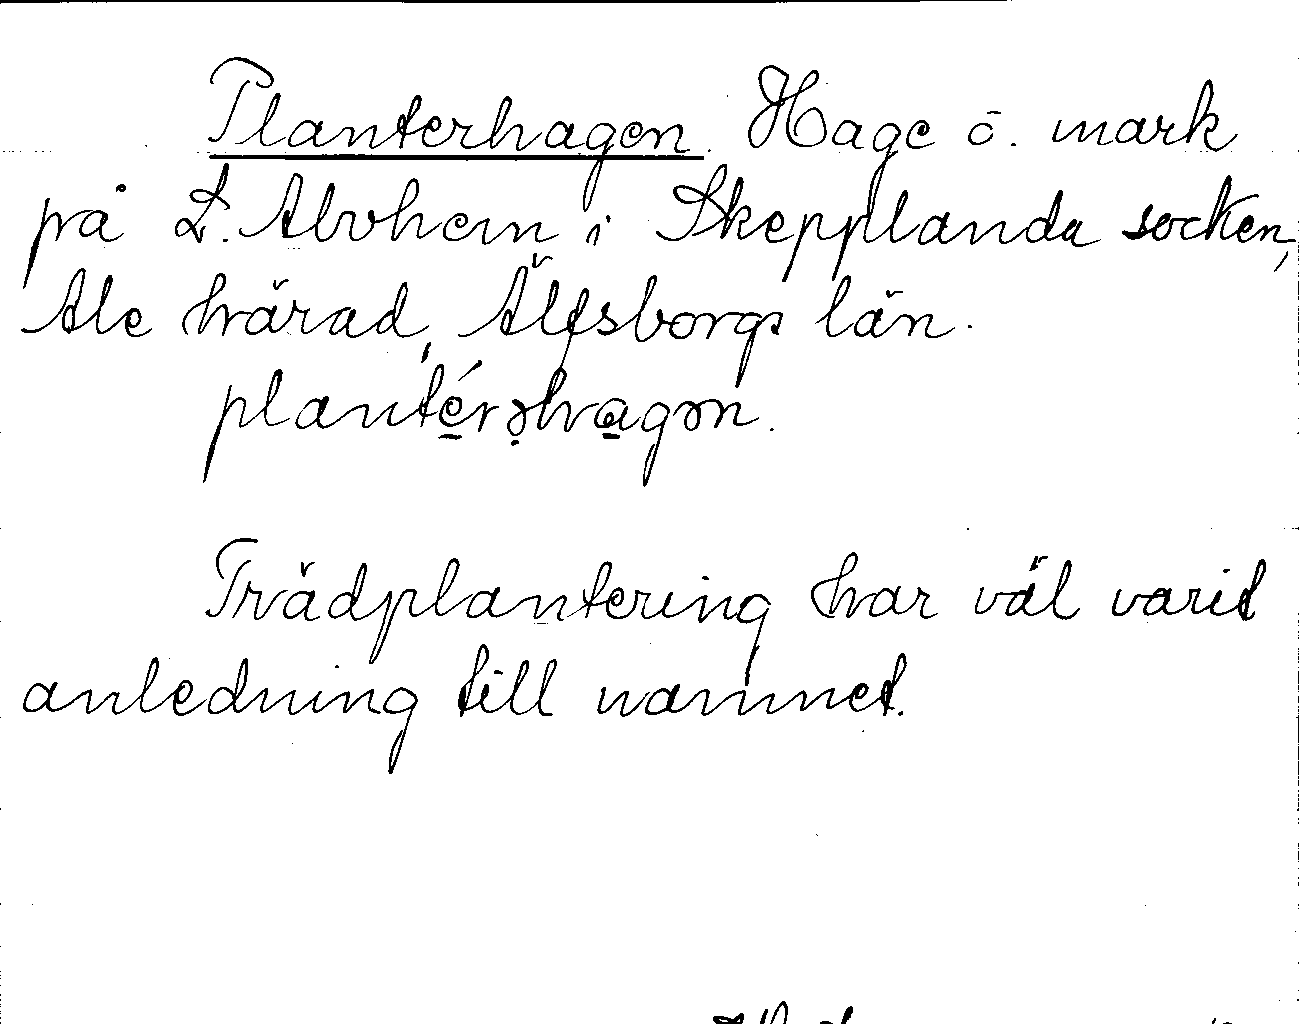 Planterhagen. Hage ö. mark
på L. Alvhem i Skepplanda socken,
Ale härad, Älfsborgs län.
plantérəhagən.
Trädplantering har väl varit
anledning till namnet.